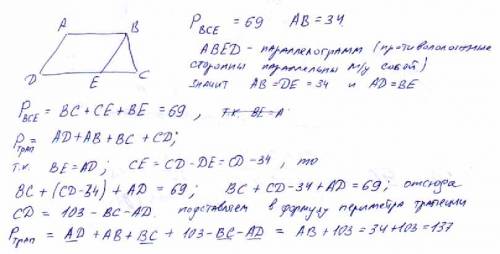 A B
D E C
P_BCE = 69 AB = 34.
ABED – параллелограмм (противоположные
стороны параллельны м/у собой)
значит AB = DE = 34 и AD = BE
P_BCE = BC + CE + BE = 69, т.к. BE = A
P_трап = AD + AB + BC + CD;
т.к. BE = AD; CE = CD - DE = CD - 34, то
BC + (CD - 34) + AD = 69; BC + CD - 34 + AD = 69; отсюда
CD = 103 - BC - AD. подставляем в формулу периметра трапеции
P_трап = AD + AB + BC + 103 - BC - AD = AB + 103 = 34 + 103 = 137